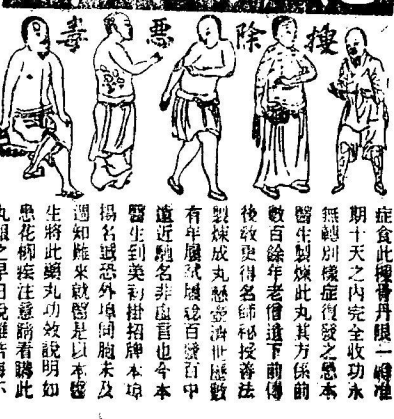 搜除惡毒
症食此搜骨丹限一禮准
期十天之內完全收功永
無轉別樣症復發之患本
醫生製煉此丸其方係前
數百餘年老僧遺下前傳
後敎更得名師秘授善法
製煉成丸懸壺濟世歷數
有年屢試屢驗百發百中
遠近馳名非虛言也今本
醫生到美初掛招牌本埠
揚名誠恐外埠同胞未及
週知難來就醫是以本醫
生將此藥丸功效說明如
患花柳疾注意請看講此
丸願之早日脫離苦海不